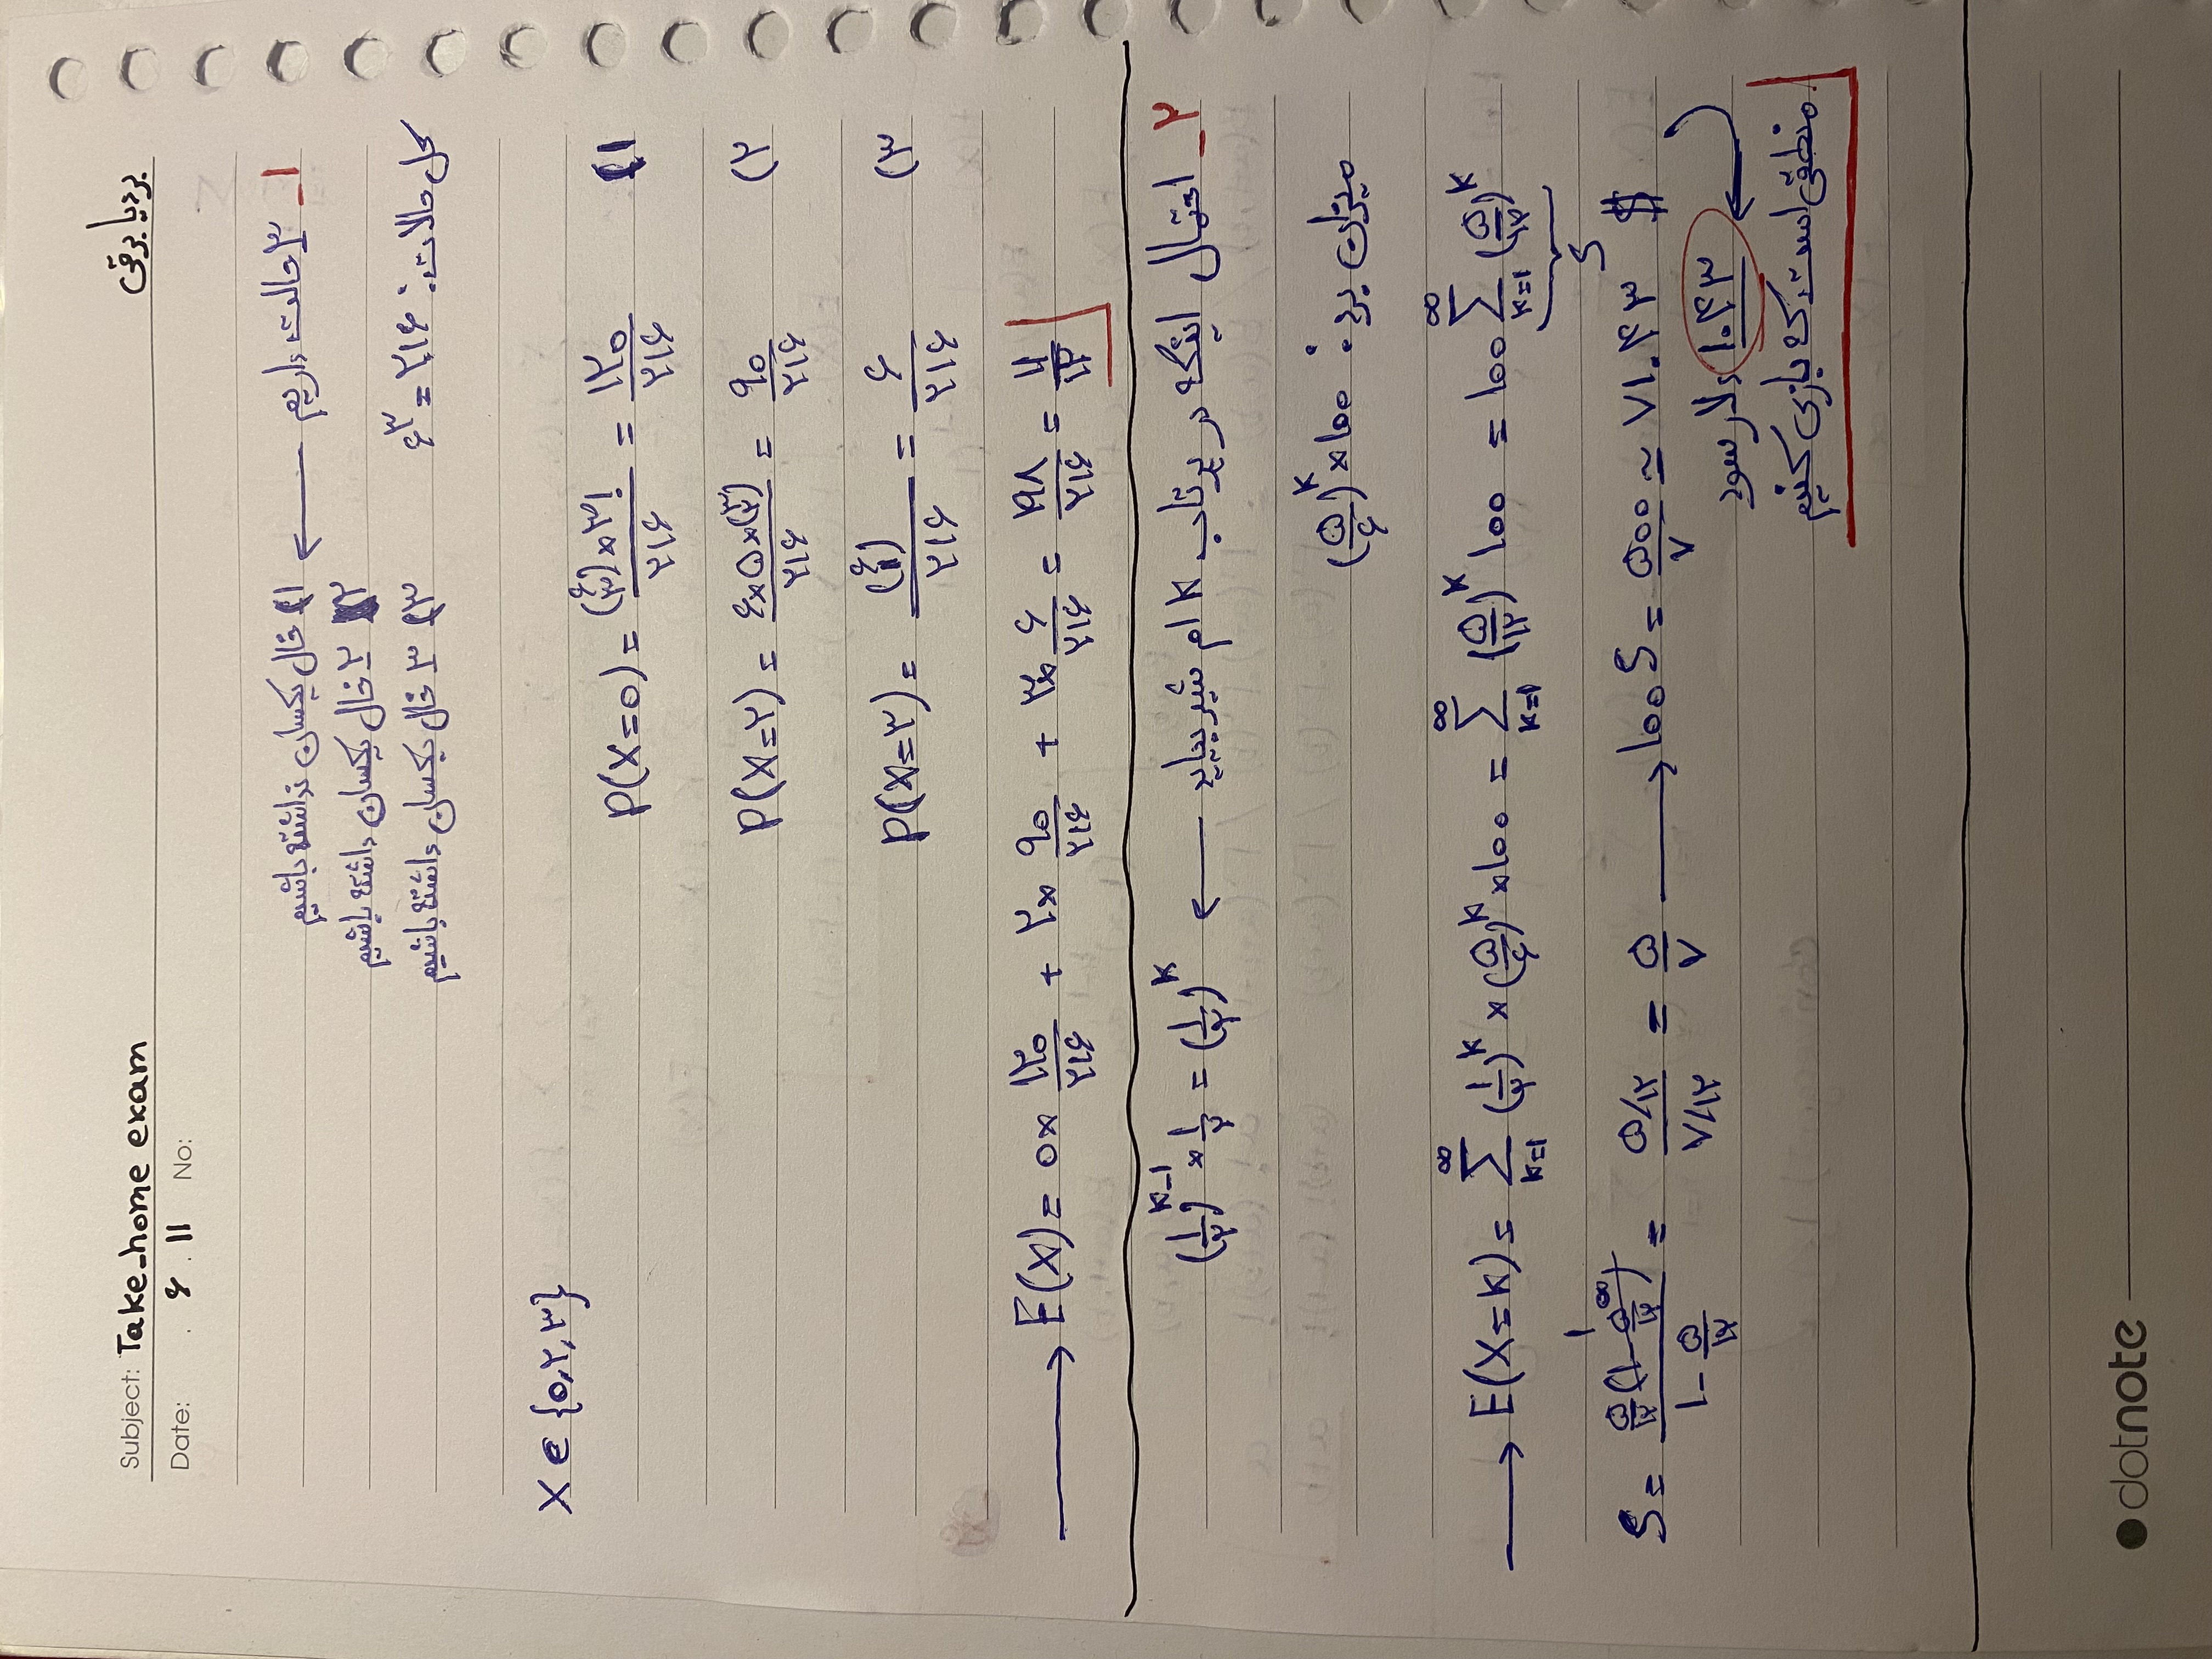 Subject: Take-home exam
بردیا برقی
Date: . ۶ . ۱۱ No:
۱- ۳ حالت داریم ← ۱) خال یکسان نداشته باشیم
۲) ۲ خال یکسان داشته باشیم
کل حالات: ۶^۳ = ۲۱۶
۳) ۳ خال یکسان داشته باشیم
X ∈ {۰,۲,۳}
۱) P(X=۰) = (۶ ۳)×۳! / ۲۱۶ = ۱۲۰/۲۱۶
۲) P(X=۲) = ۶×۵×(۳ ۲) / ۲۱۶ = ۹۰/۲۱۶
۳) P(X=۳) = (۶ ۱) / ۲۱۶ = ۶/۲۱۶
→ E(X) = ۰× ۱۲۰/۲۱۶ + ۲× ۹۰/۲۱۶ + ۳× ۶/۲۱۶ = ۱۹۸/۲۱۶ = ۱۱/۱۲
۲- احتمال اینکه در پرتاب K ام شیر بیاید ← (۱/۲)^{K-۱} × ۱/۲ = (۱/۲)^K
میزان برد: (۵/۶)^K × ۱۰۰
→ E(X=K) = ∑_{K=۱}^{∞} (۱/۲)^K × (۵/۶)^K × ۱۰۰ = ∑_{K=۱}^{∞} (۵/۱۲)^K ۱۰۰ = ۱۰۰ ∑_{K=۱}^{∞} (۵/۱۲)^K
S
S = ۵/۱۲ (۱ - ۵/۱۲^∞) / ۱ - ۵/۱۲ = ۵/۱۲ / ۷/۱۲ = ۵/۷ → ۱۰۰ S = ۵۰۰/۷ ≃ ۷۱.۴۳ $
۱.۴۳ دلار سود
منطقی است که بازی کنیم
dotnote